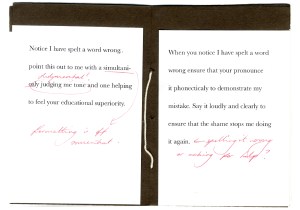 Notice I have spelt a word wrong,
point this out to me with a simultani-
ously judging me tone and one helping
to feel your educational superiority.
Something is
When you notice I have spelt a word
wrong ensure that your pronounce
it phonetically to demonstrate my
mistake. Say it loudly and clearly to
ensure that the shame stops me doing
it again.
spelling it wrong
or asking for help?